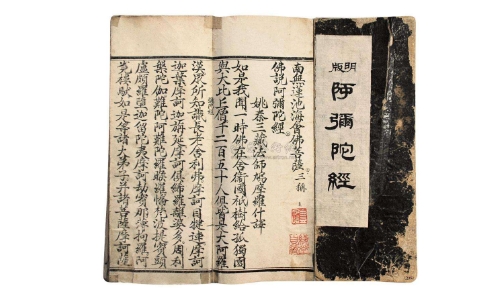 明版
阿彌陀經
南無蓮池海會佛菩薩 三稱
佛說阿彌陀經
姚秦三藏法師鳩摩羅什譯
如是我聞一時佛在舍衛國祇樹給孤獨園
與大比丘僧千二百五十人俱皆是大阿羅
漢衆所知識長老舍利弗摩訶目犍連摩訶
迦葉摩訶迦旃延摩訶俱絺羅離婆多周利
槃陀伽難陀阿難陀羅睺羅憍梵波提賓頭
盧頗羅墮迦留陀夷摩訶劫賓那薄拘羅阿
樓馱如是等諸大弟子并諸菩薩摩訶薩